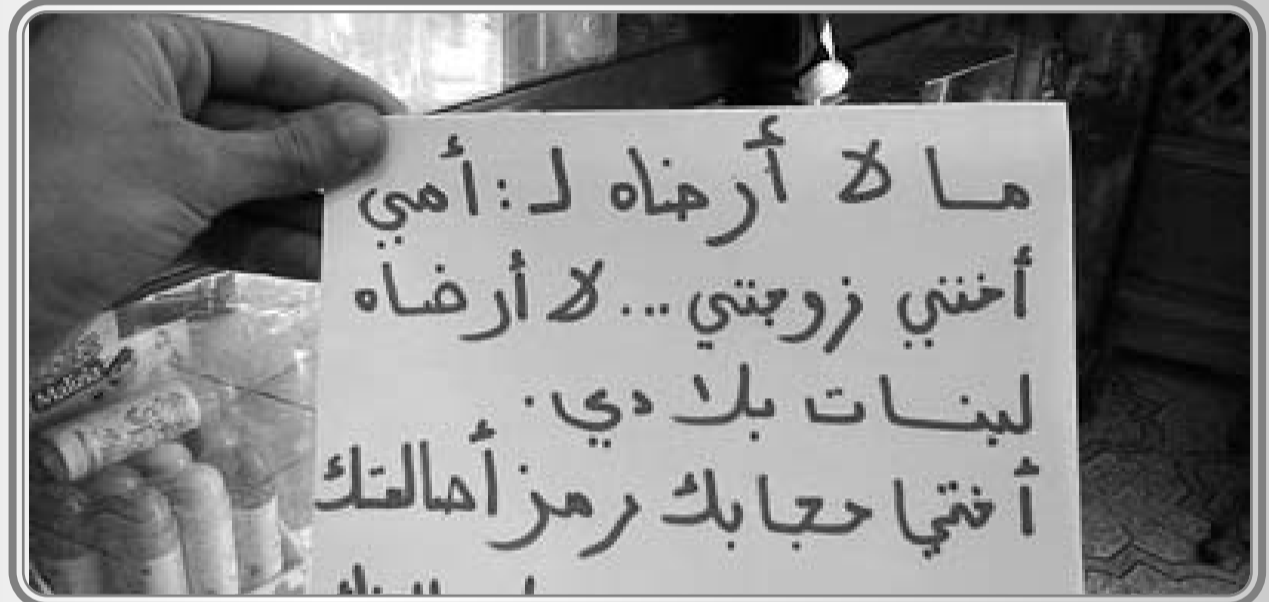 ما لا أرضاه لـ: أمي
أختي زوجتي... لا أرضاه
لبنات بلادي.
أختي حجابك رمز أصالتك